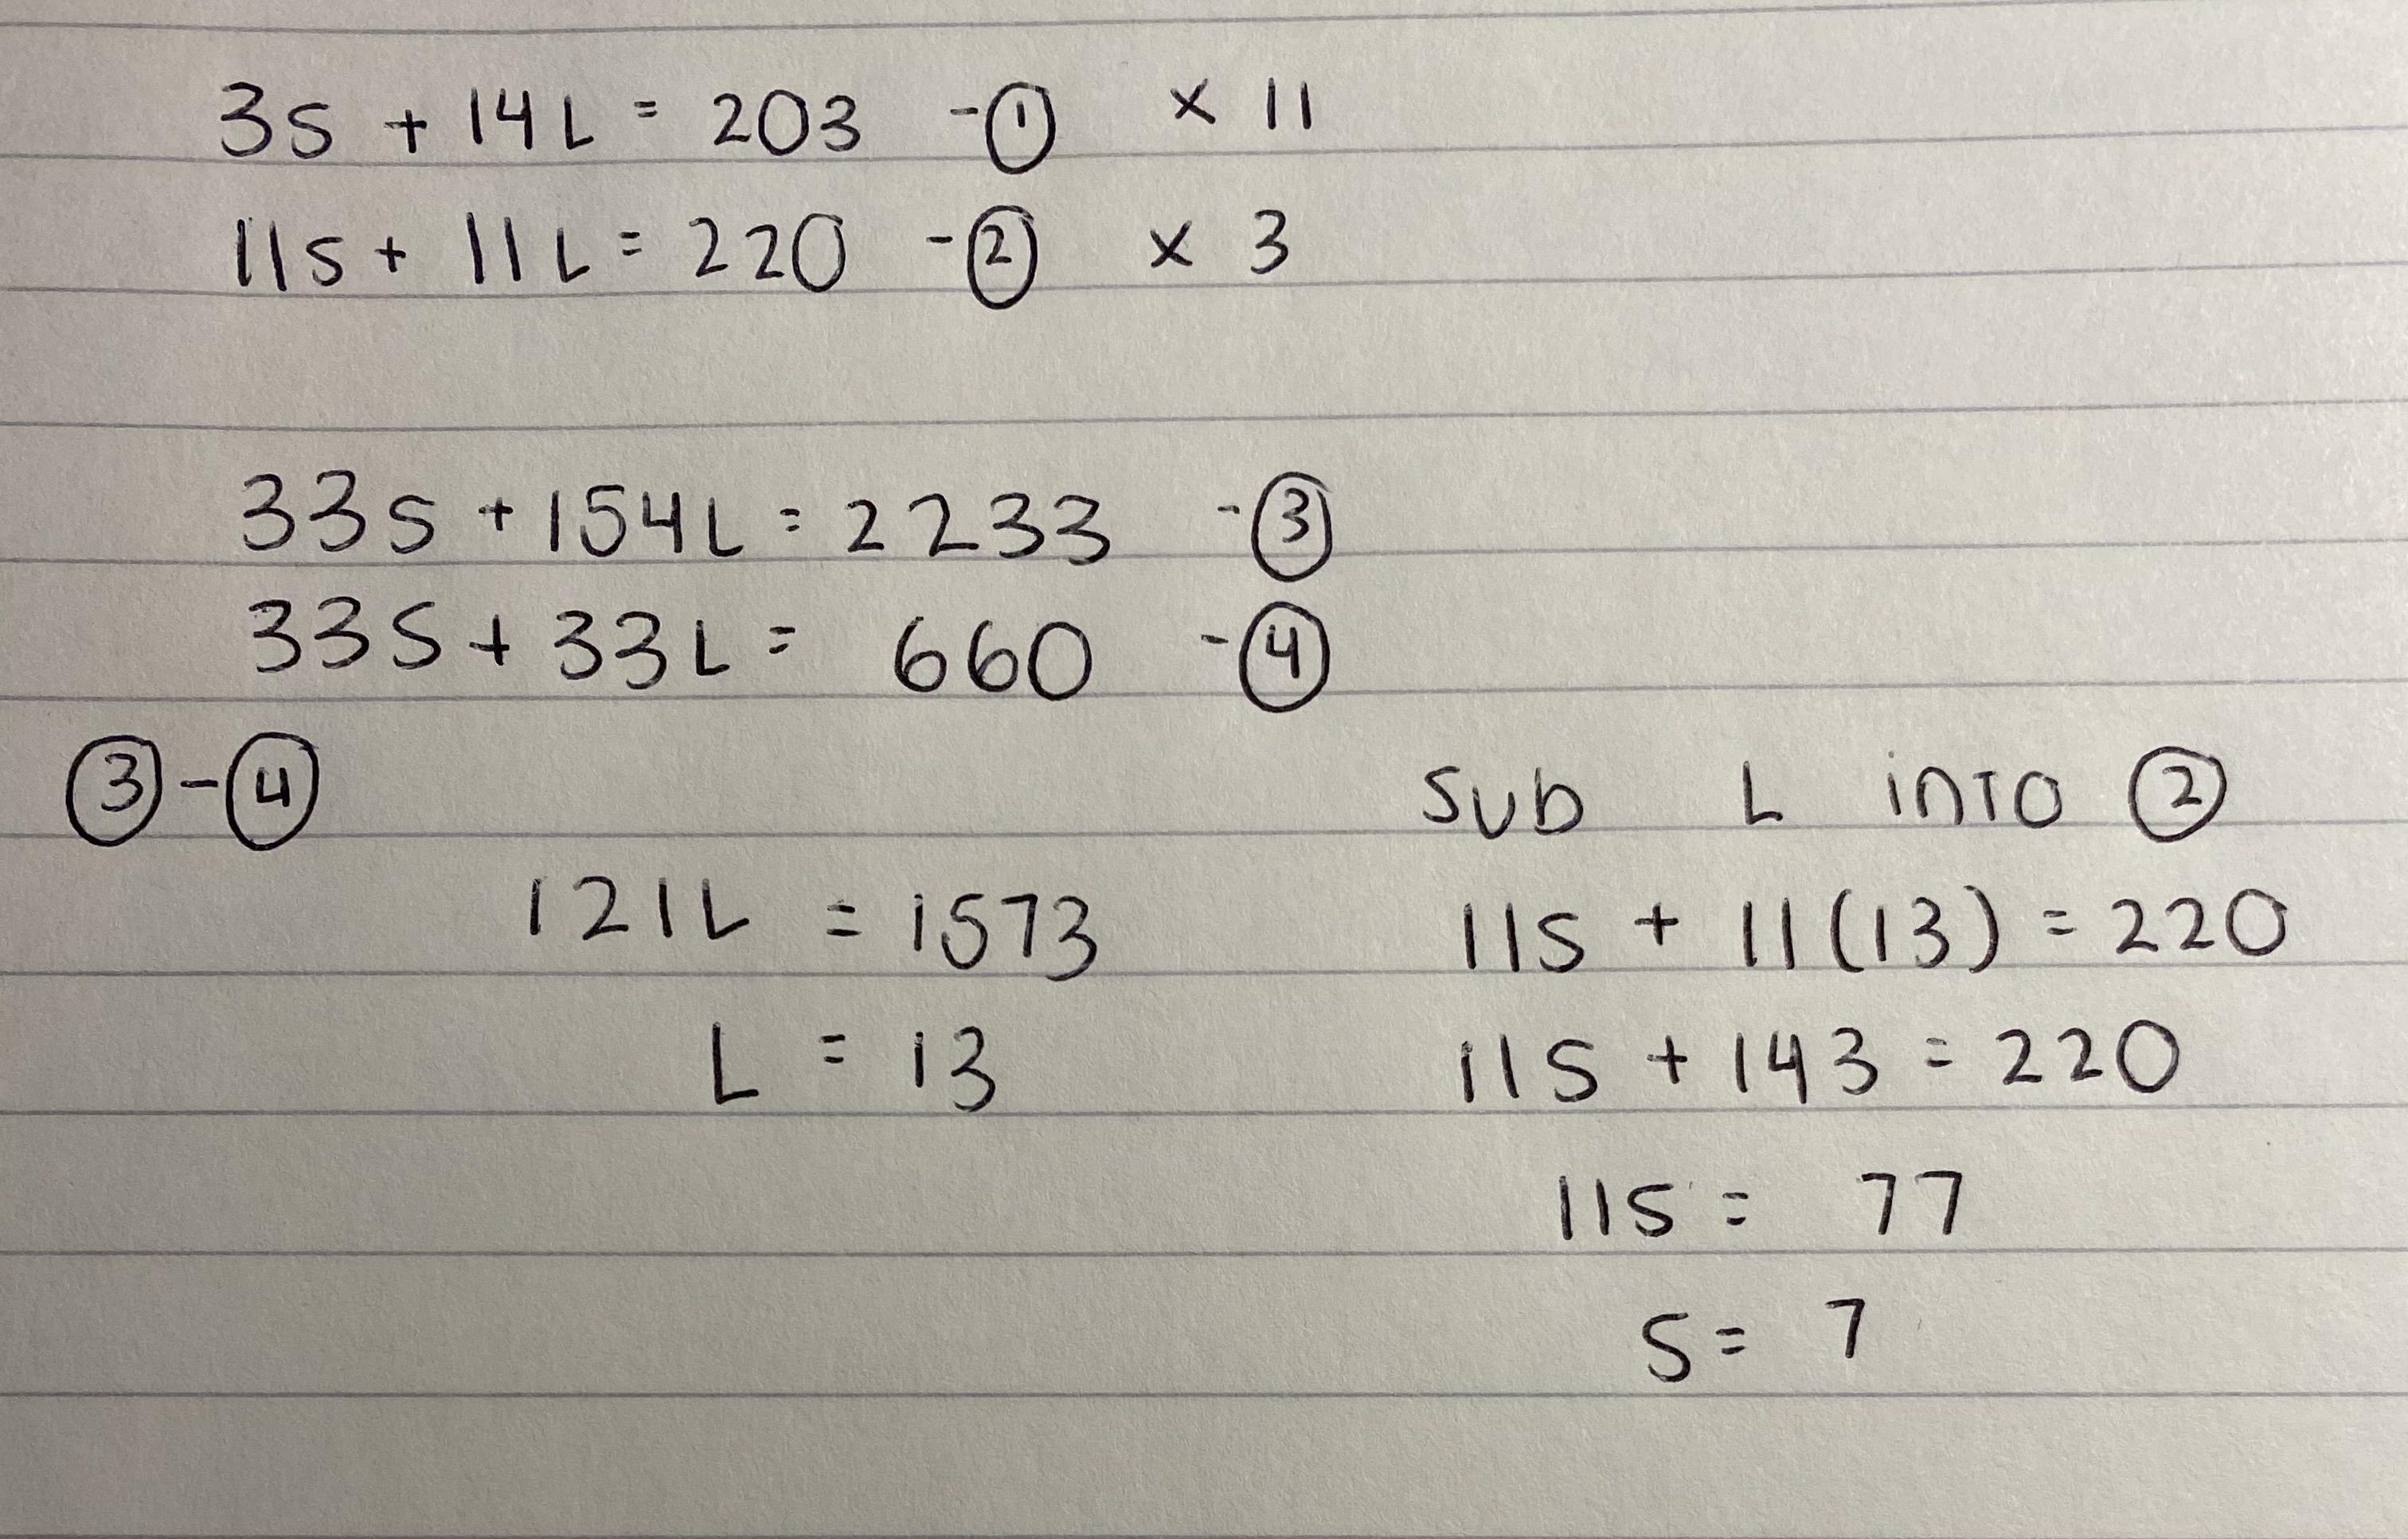 3S + 14L = 203 -① × 11
11S + 11L = 220 -② × 3
33S + 154L = 2233 -③
33S + 33L = 660 -④
③-④
121L = 1573
L = 13
Sub L into ②
11S + 11(13) = 220
11S + 143 = 220
11S = 77
S = 7